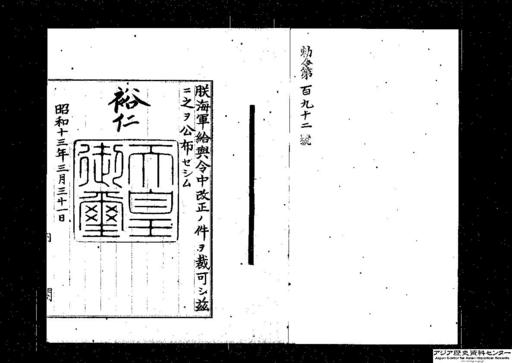 勅令第百九十二號
朕海軍給與令中改正ノ件ヲ裁可シ玆
ニ之ヲ公布セシム
裕仁
天皇御璽
昭和十三年三月三十一日
内閣
アジア歴史資料センター
Japan Center for Asian Historical Records